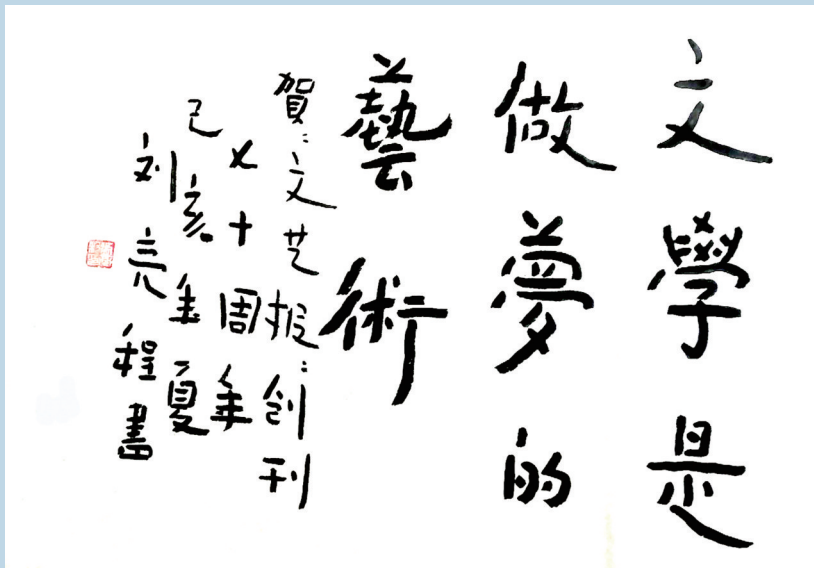 文學是
做夢的
藝術
賀:文艺报:创刊
七十周年
己亥年夏
刘亮程書